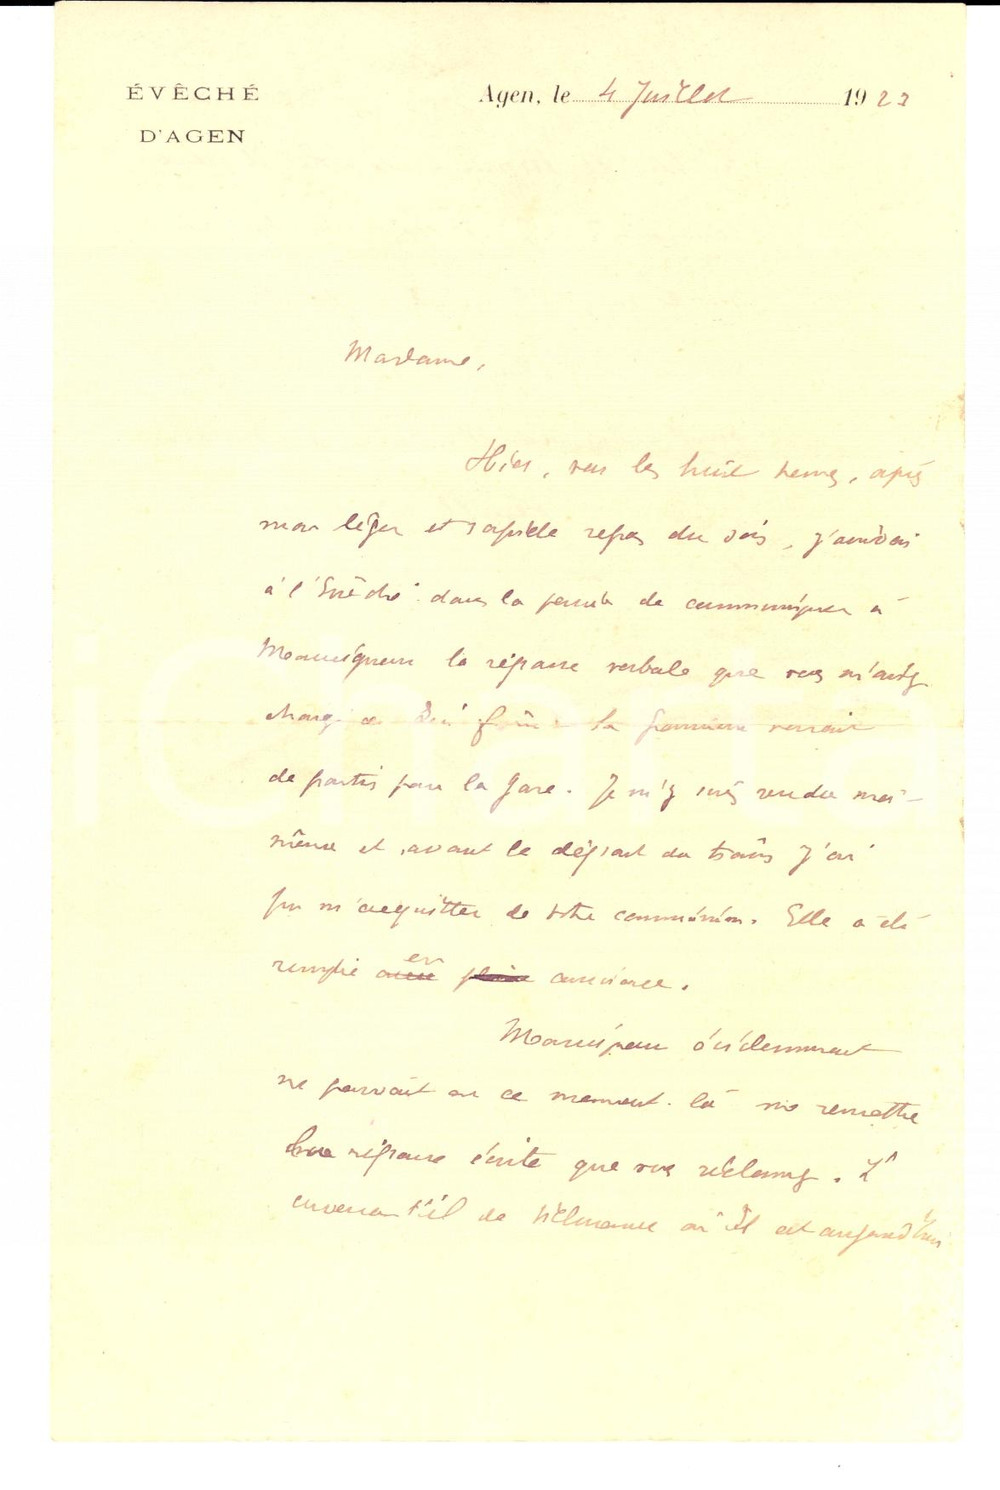 ÉVÊCHÉ
D'AGEN
Agen, le 4 Juillet 1923
Madame,
Hier, vers les huit heures, après
mon léger et rapide repas du soir, j'arrivais
à l'Evêché dans la pensée de communiquer à
Monseigneur la réponse verbale que vous m'aviez
chargé de la personne venait
de partir pour la gare. Je m'y suis rendu moi-
même et avant le départ du train j'ai
pu m'acquitter de votre commission. Elle a été
remplie en conscience.
Monseigneur évidemment
ne pouvait en ce moment là me remettre
une réponse écrite que vous réclamez. L'
enverra-t-il de où il est aujourd'hui